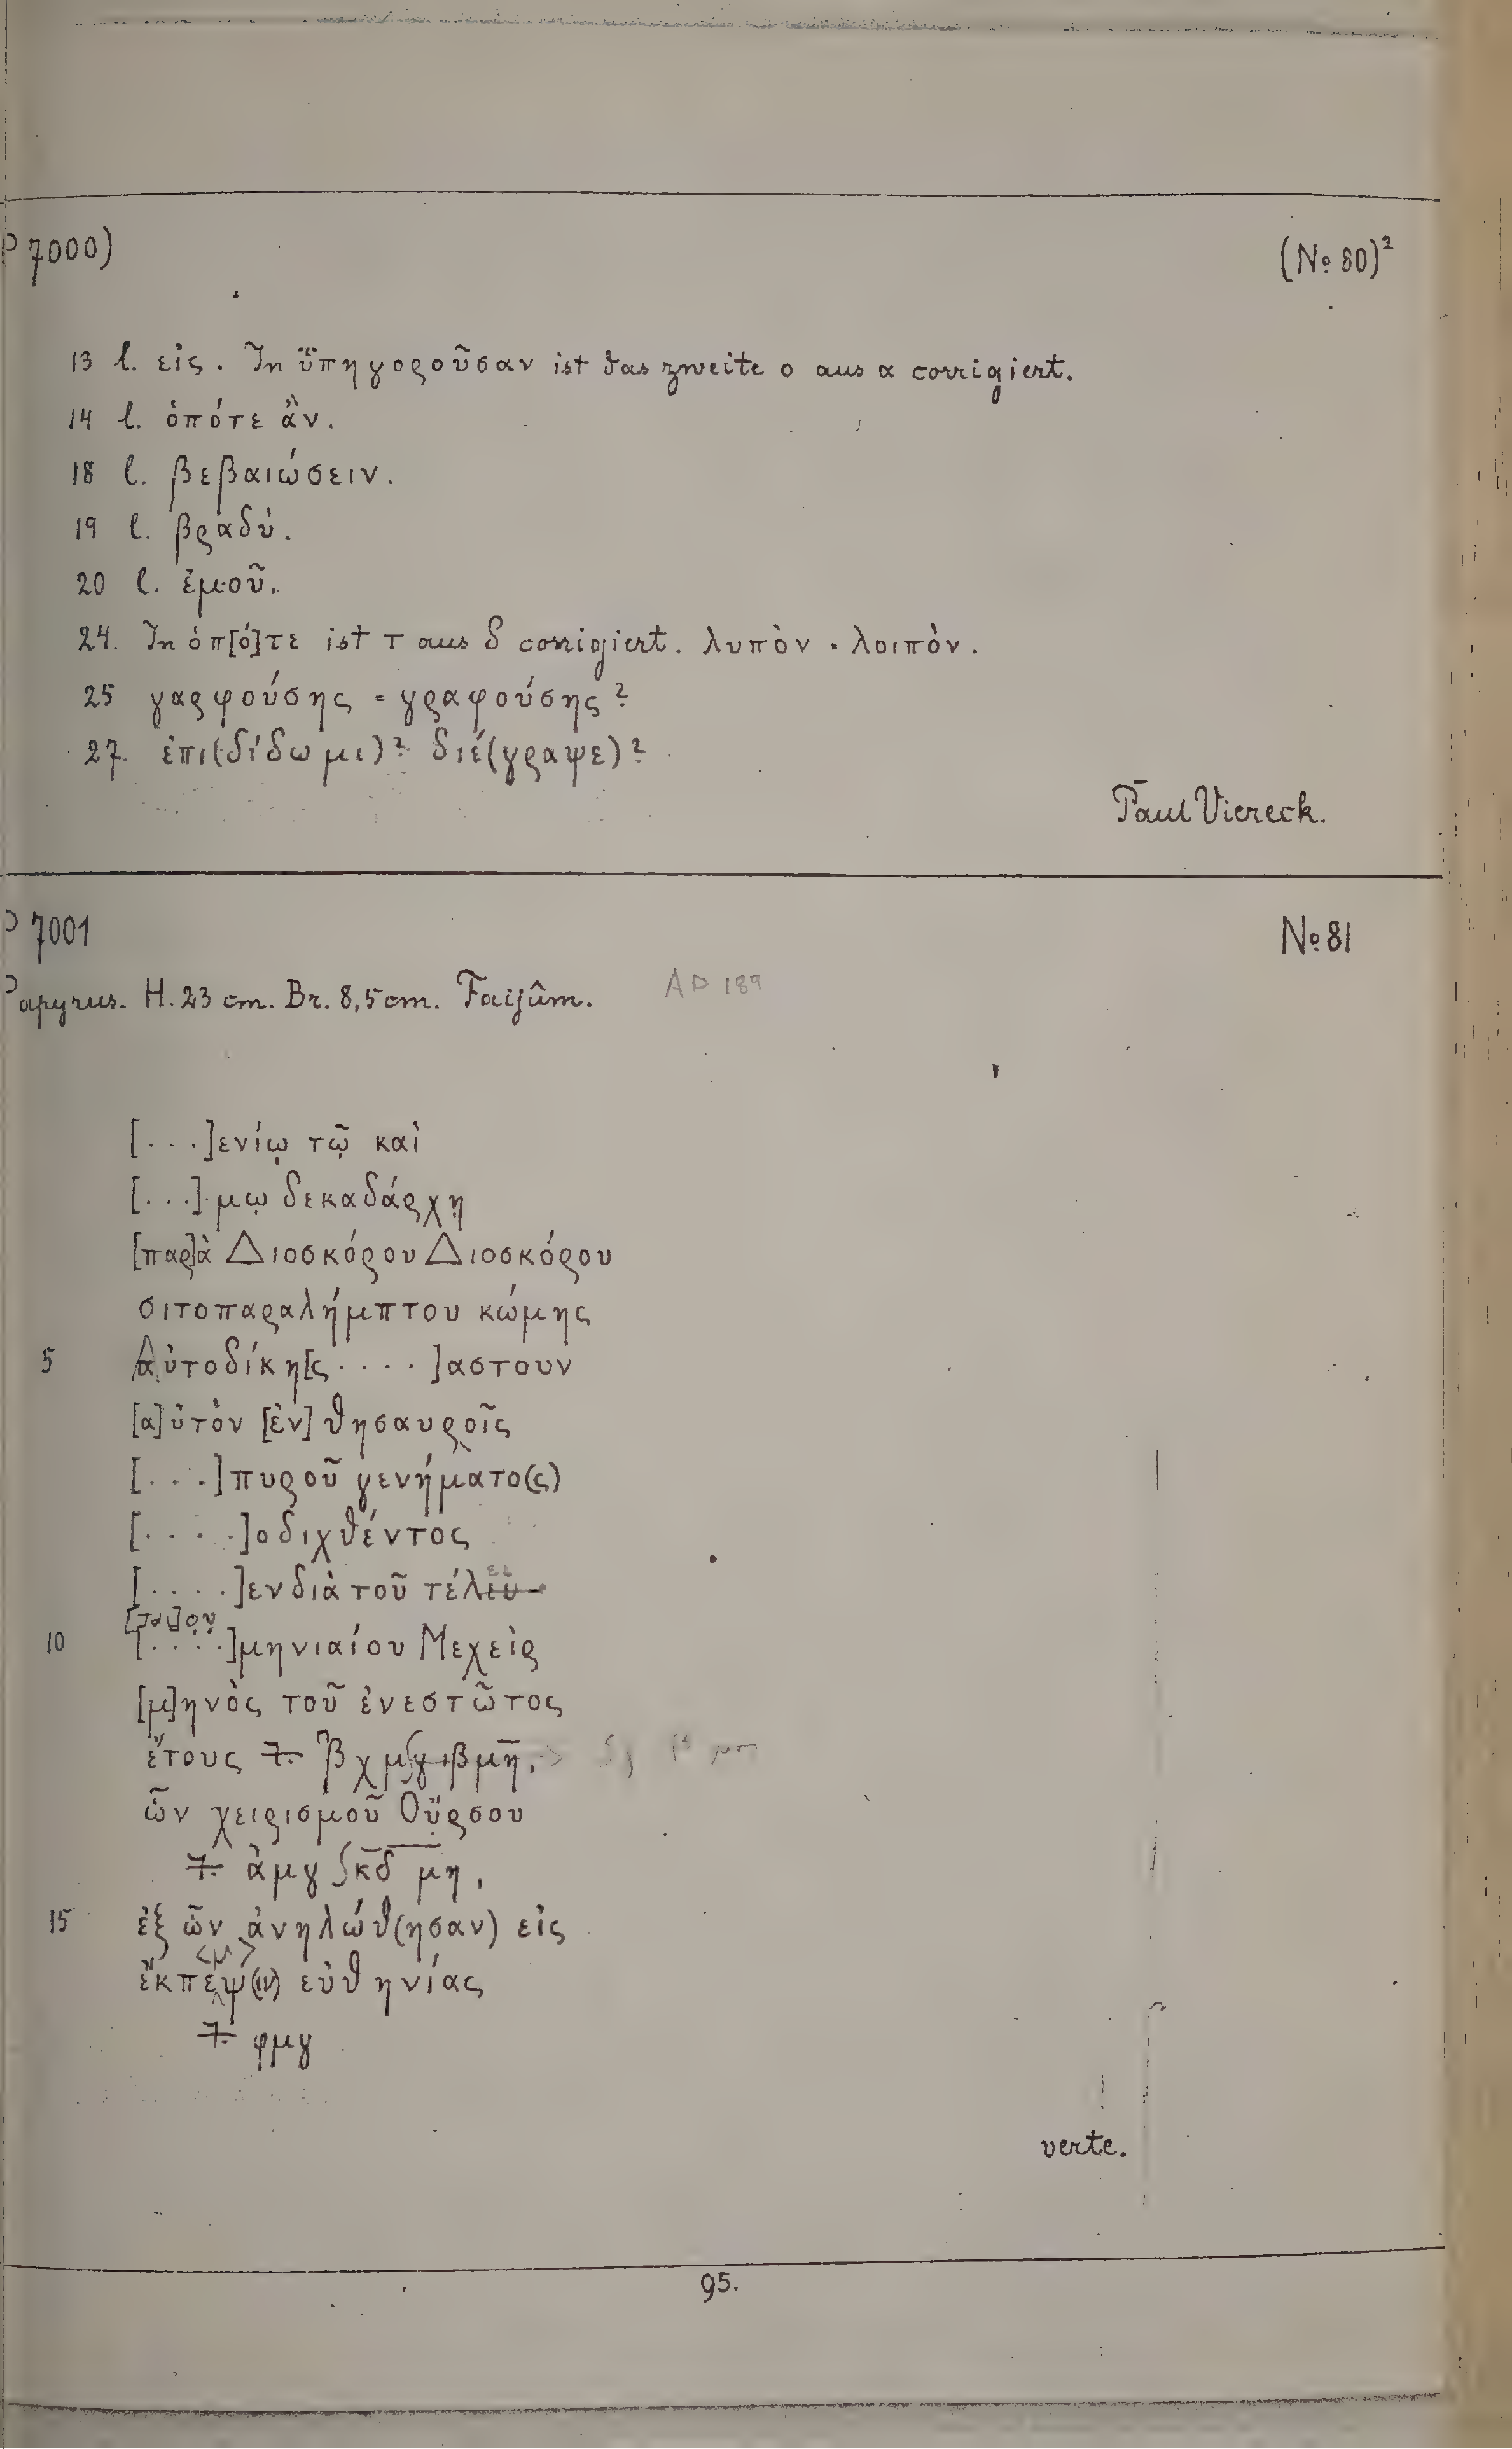 P 7000)
(No 80)²
13 l. εἰς. In ϋ̔πηγοροῦσαν ist das zweite ο aus α corrigiert.
14 l. ὁπότε ἂν.
18 l. βεβαιώσειν.
19 l. βραδύ.
20 l. ἐμοῦ.
24. In ὁπ[ό]τε ist τ aus δ corrigiert. λυπὸν = λοιπὸν.
25 γαρφούσης = γραφούσης?
27. ἐπι(δίδωμι)? διέ(γραψε)?
Paul Viereck.
P 7001
No 81
Papyrus. H. 23 cm. Br. 8,5 cm. Faijûm.
AD 189
[. . .]ενίῳ τῷ καὶ
[. . .].μῳ δεκαδάρχῃ
[παρ]ὰ Διοσκόρου Διοσκόρου
σιτοπαραλήμπτου κώμης
5 Αὐτοδίκη[ς . . . .]αστουν
[α]ὐτὸν [ἐν] θησαυροῖς
[. . .]πυροῦ γενήματο(ς)
[. . . .]οδιχθέντος
[. . . .]εν διὰ τοῦ τέλευ
10 [. . . .]μηνιαίου Μεχεὶρ
[μ]ηνὸς τοῦ ἐνεστῶτος
ἔτους
ὧν χειρισμοῦ Οὔρσου
αμγ ∫κδ μη,
15 ἐξ ὧν ἀνηλώθ(ησαν) εἰς
<μ>
ἔκπεψ(ιν) εὐθηνίας
φμγ
verte.
95.